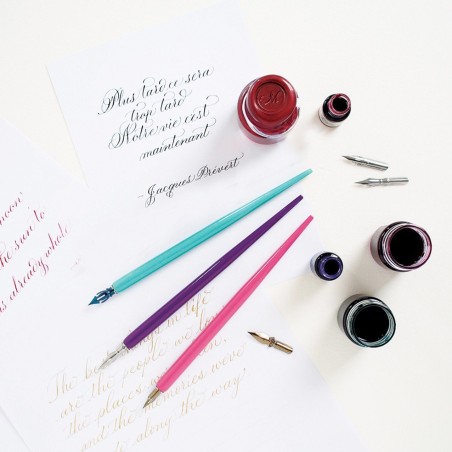 Plus tard ce sera
trop tard
Notre vie c'est
maintenant
-Jacques Prévert
moon'
the sun to
s already whole
The best things in life
are the people we love
the places we've seen,
and the memories we've
along the way